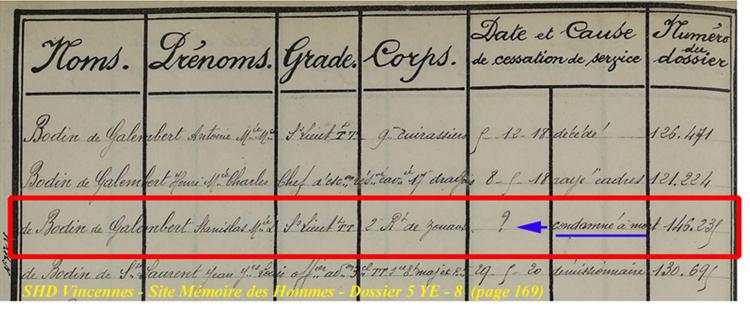 Noms. Prénoms. Grade. Corps. Date et Cause de cessation de service Numéro du dossier
Bodin de Galembert Antoine S/s Lieut 9e cuirassiers 5 - 12 - 18 décédé 126.471
Bodin de Galembert Henri Mie Charles Chef d'esc 17 dragons 8 - 5 - 18 rayé cadres 121.224
de Bodin de Galembert Stanislas S/s Lieut 2e Rt de zouaves ? condamné à mort 146.235
de Bodin de St Laurent Jean 29 - 5 - 20 démissionnaire 130.695
SHD Vincennes - Site Mémoire des Hommes - Dossier 5 YE - 8 (page 169)